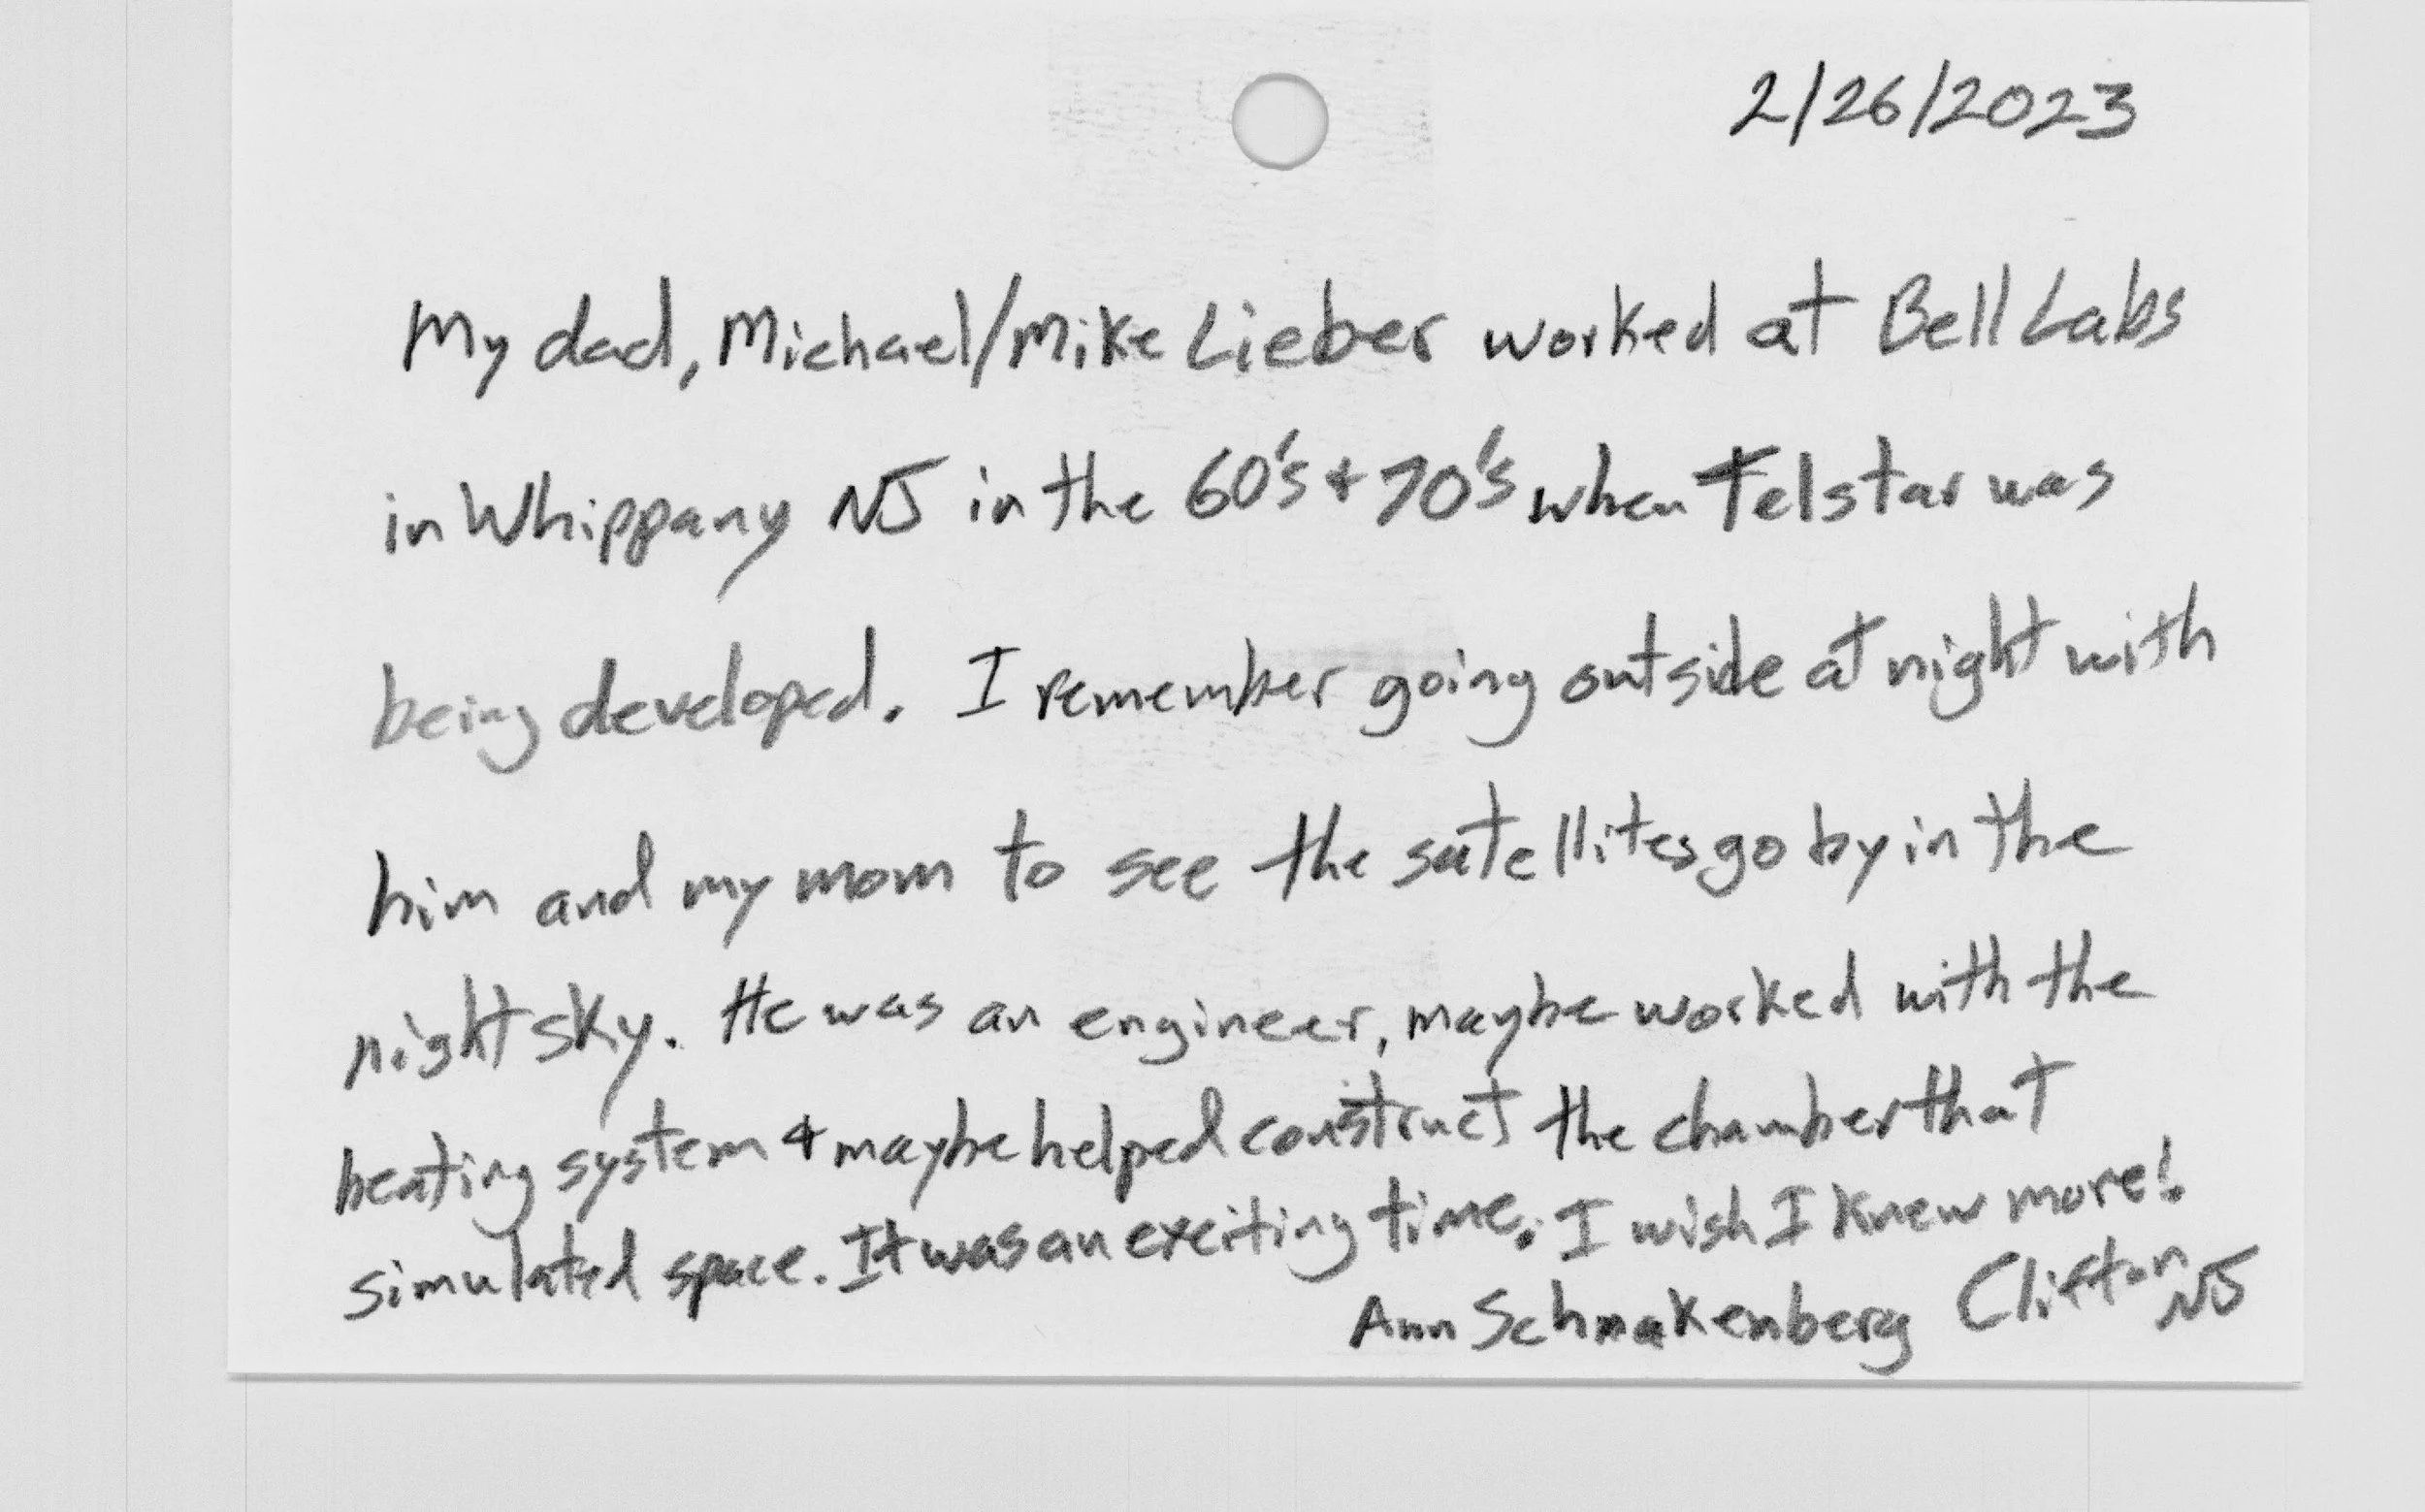 2/26/2023
My dad, Michael/Mike Lieber worked at Bell Labs
in Whippany NJ in the 60's + 70's when Telstar was
being developed. I remember going outside at night with
him and my mom to see the satellites go by in the
night sky. He was an engineer, maybe worked with the
heating system + maybe helped construct the chamber that
simulated space. It was an exciting time. I wish I knew more!
Ann Schmakenberg Clifton NJ